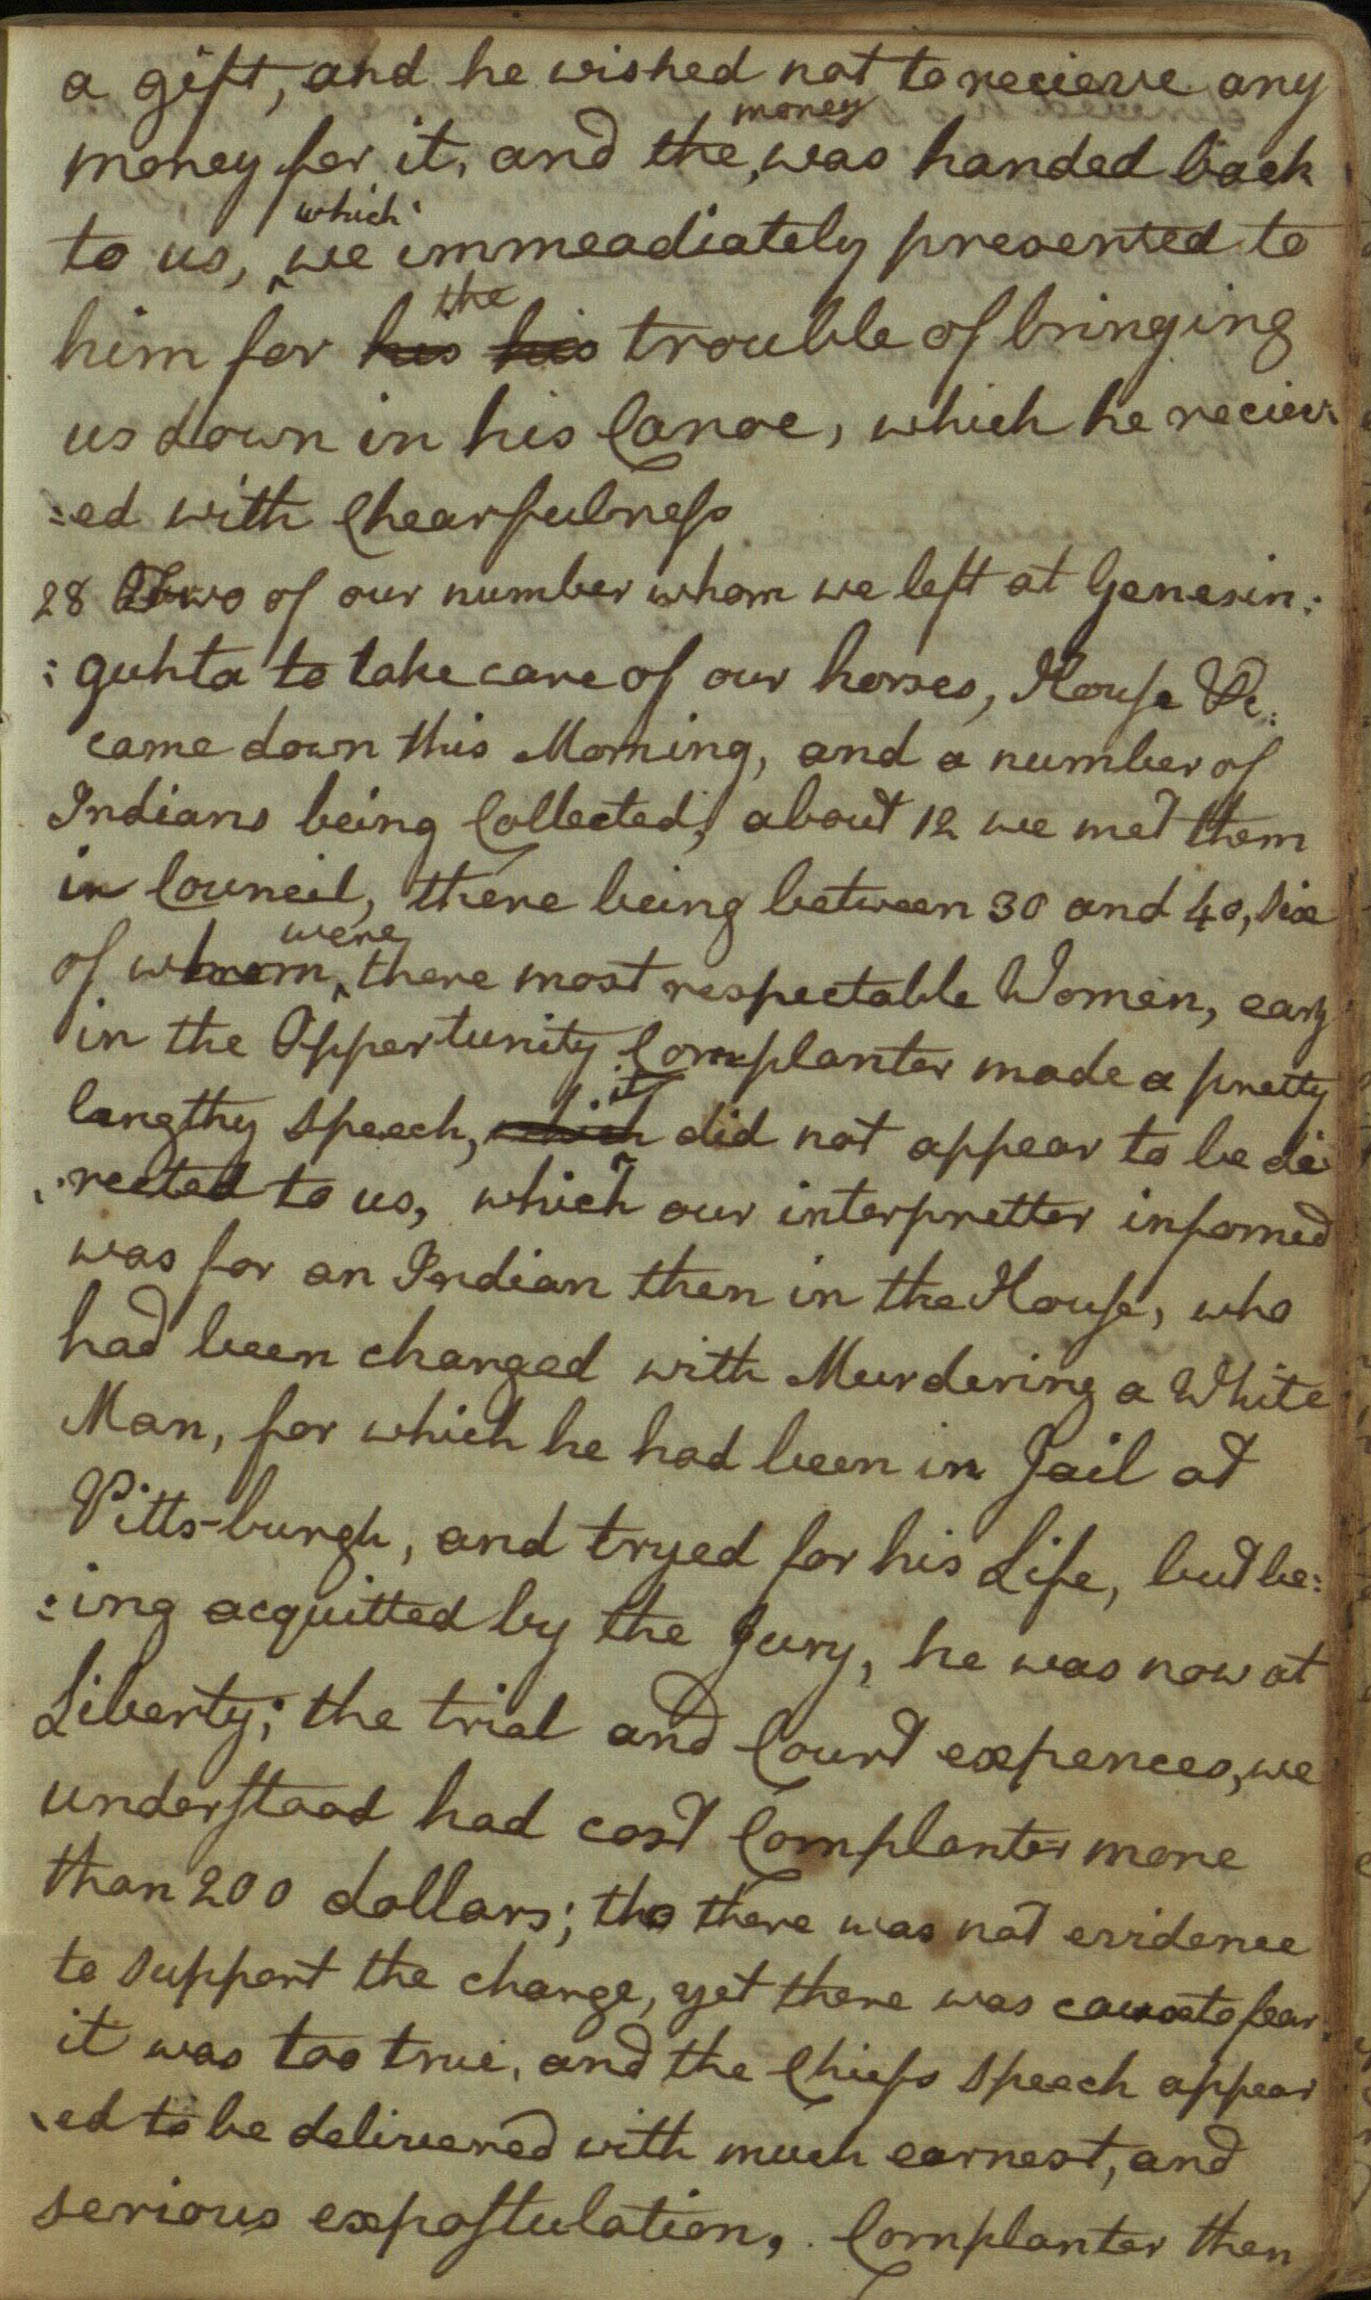 a gift, and he wished not to recieve any
money for it, and the money was handed back
to us, which we immeadiately presented to
him for his his the trouble of bringing
us down in his Canoe, which he reciev:
:ed with Chearfulness
28 Two of our number whom we left at Genesin:
:guhta to take care of our horses, House &c.
came down this Morning, and a number of
Indians being Collected, about 12 we met them
in Council, there being between 30 and 40, Six
of whom were there most respectable Women, early
in the Oppertunity Cornplanter made a pretty
lengthy Speech, which it did not appear to be di:
:rected to us, which our interpretter informed
was for an Indian then in the House, who
had been charged with Murdering a White
Man, for which he had been in Jail at
Pitts-burgh, and tryed for his Life, but be:
:ing acquitted by the Jury, he was now at
Liberty; the trial and Court expences, we
understood had cost Cornplanter more
than 200 dollars; tho there was not evidence
to Support the charge, yet there was cause to fear
it was too true, and the Chiefs Speech appear
:ed to be delivered with much earnest, and
serious expostulation, . Cornplanter then